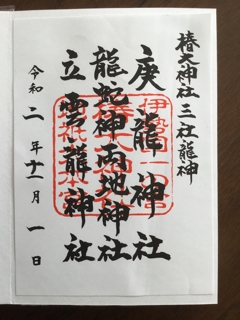 椿大神社 三社龍神
庚龍神社
龍蛇神両地神社
立雲龍神社
令和二年十一月一日